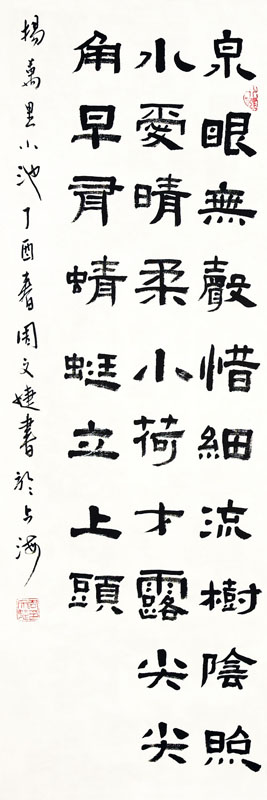 泉眼無聲惜細流樹陰照
水愛晴柔小荷才露尖尖
角早有蜻蜓立上頭
楊萬里小池丁酉春周文婕書於上海